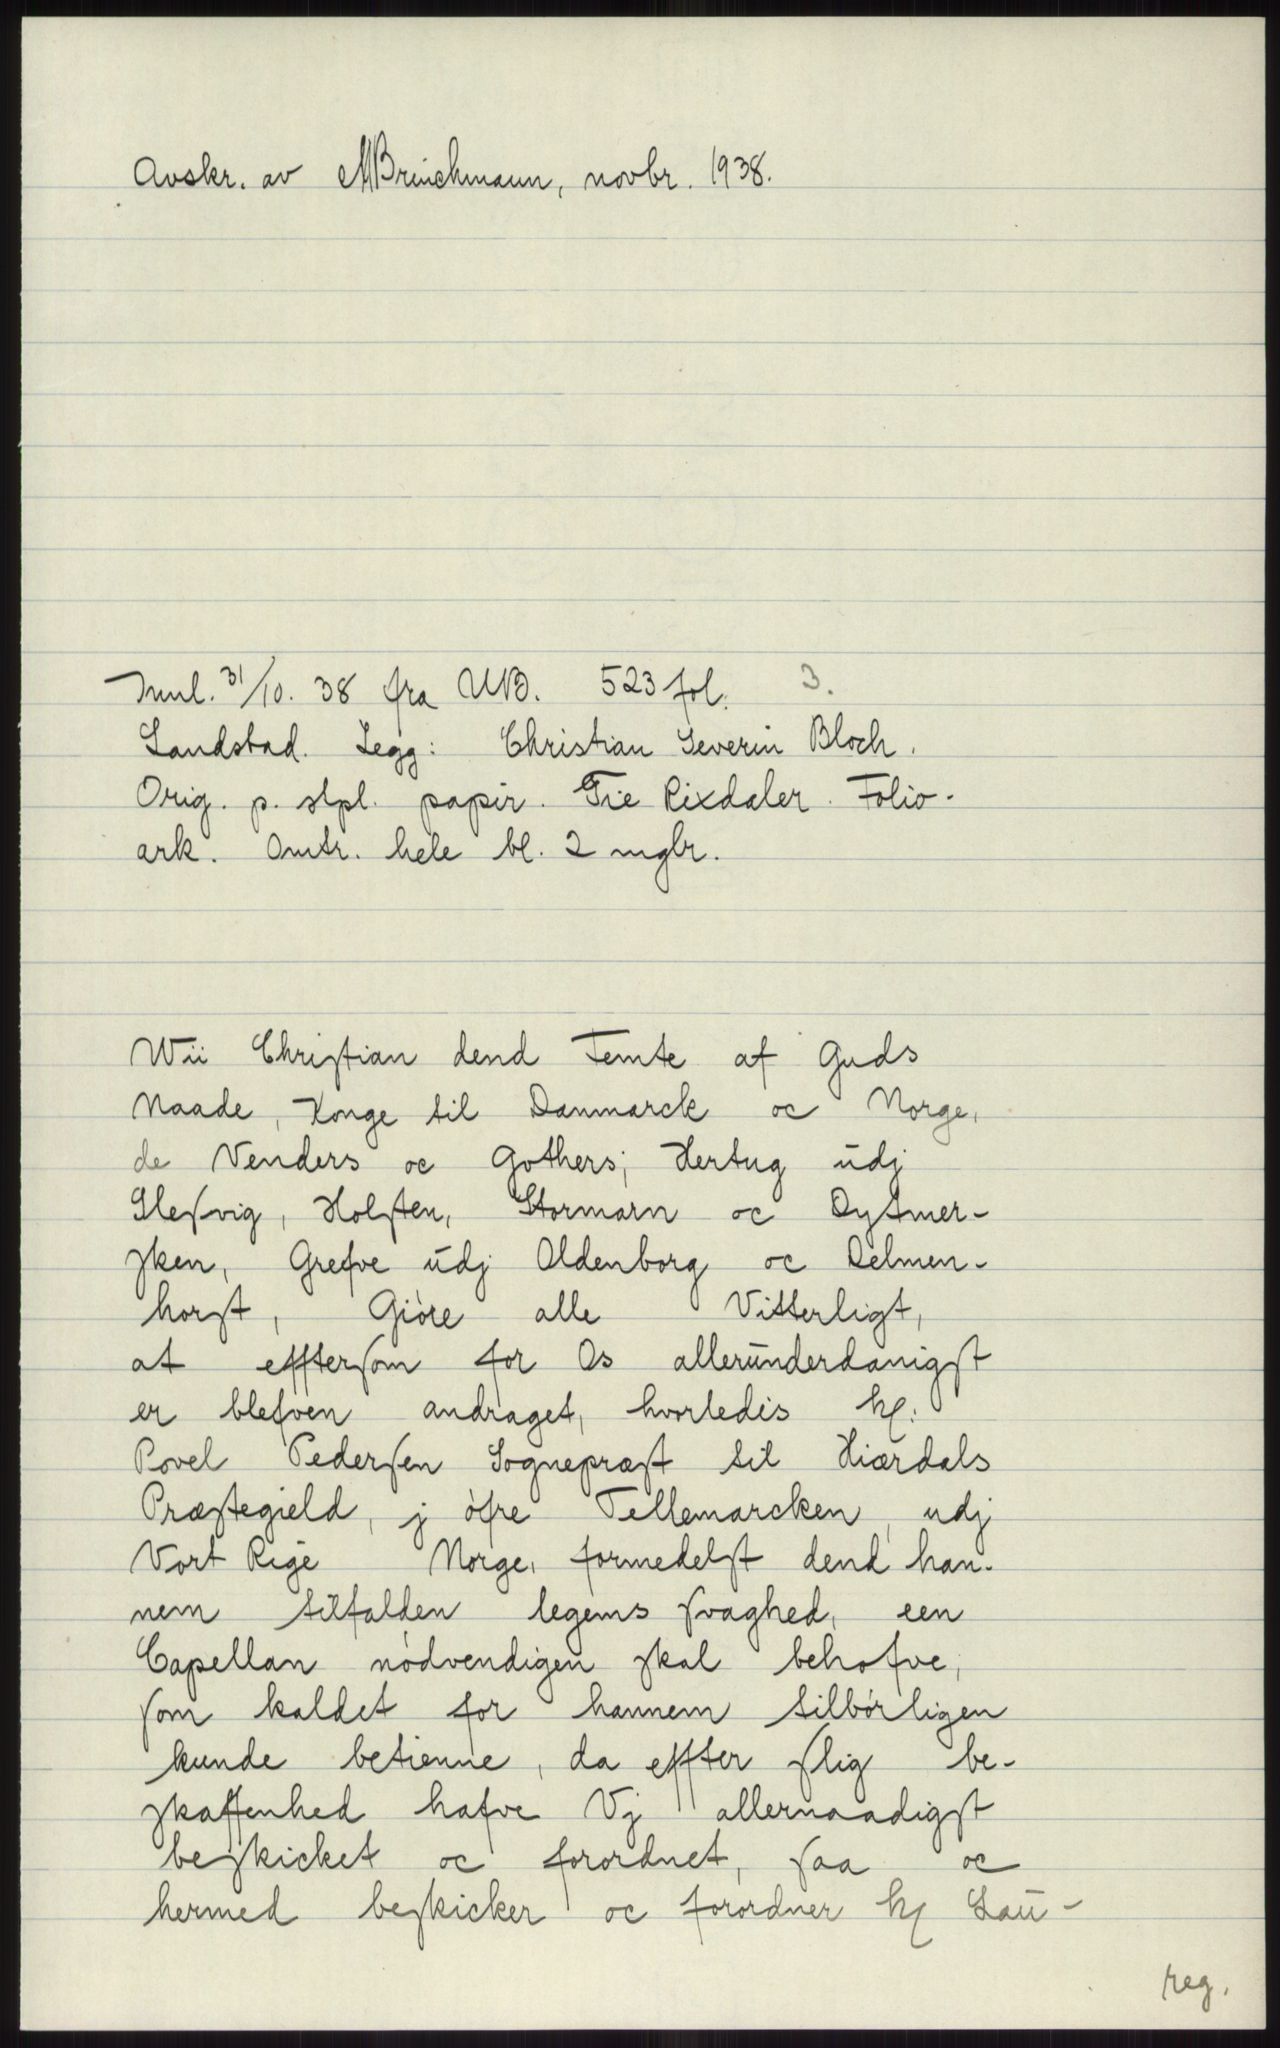 Avskr. av MBrinchmann, novbr. 1938.
Innl. 31/10. 38 fra UB. 523 fol. 3.
Landstad. Legg: Christian Severin Bloch.
Orig. p. stpl. papir. Tie Rixdaler. Folio-
ark. Omtr. hele bl. 2 mglr.
Wii Christian dend Femte af Guds
Naade, Konge til Danmarck oc Norge,
de Venders oc Gothers; Hertug udj
Slesvig, Holsten, Stormarn oc Dytmer-
sken, Grefve udj Oldenborg oc Delmen-
horst, Giöre alle Vitterligt,
at efftersom for Os allerunderdanigst
er blefven andraget, hvorledis hl:
Povel Pedersen Sognepræst til Hiærdals
Præstegield, j öfre Tellemarcken, udj
Vort Rige Norge, formedelst dend han-
nem tilfalden legems svaghed, een
Capellan nödvendigen skal behofve,
som kaldet for hannem tilbörligen
kunde betienne, da effter slig be-
skaffenhed hafve Vj allernaadigst
beskicket oc forordnet, saa oc
hermed beskicker oc forordner hl Lau-
reg.